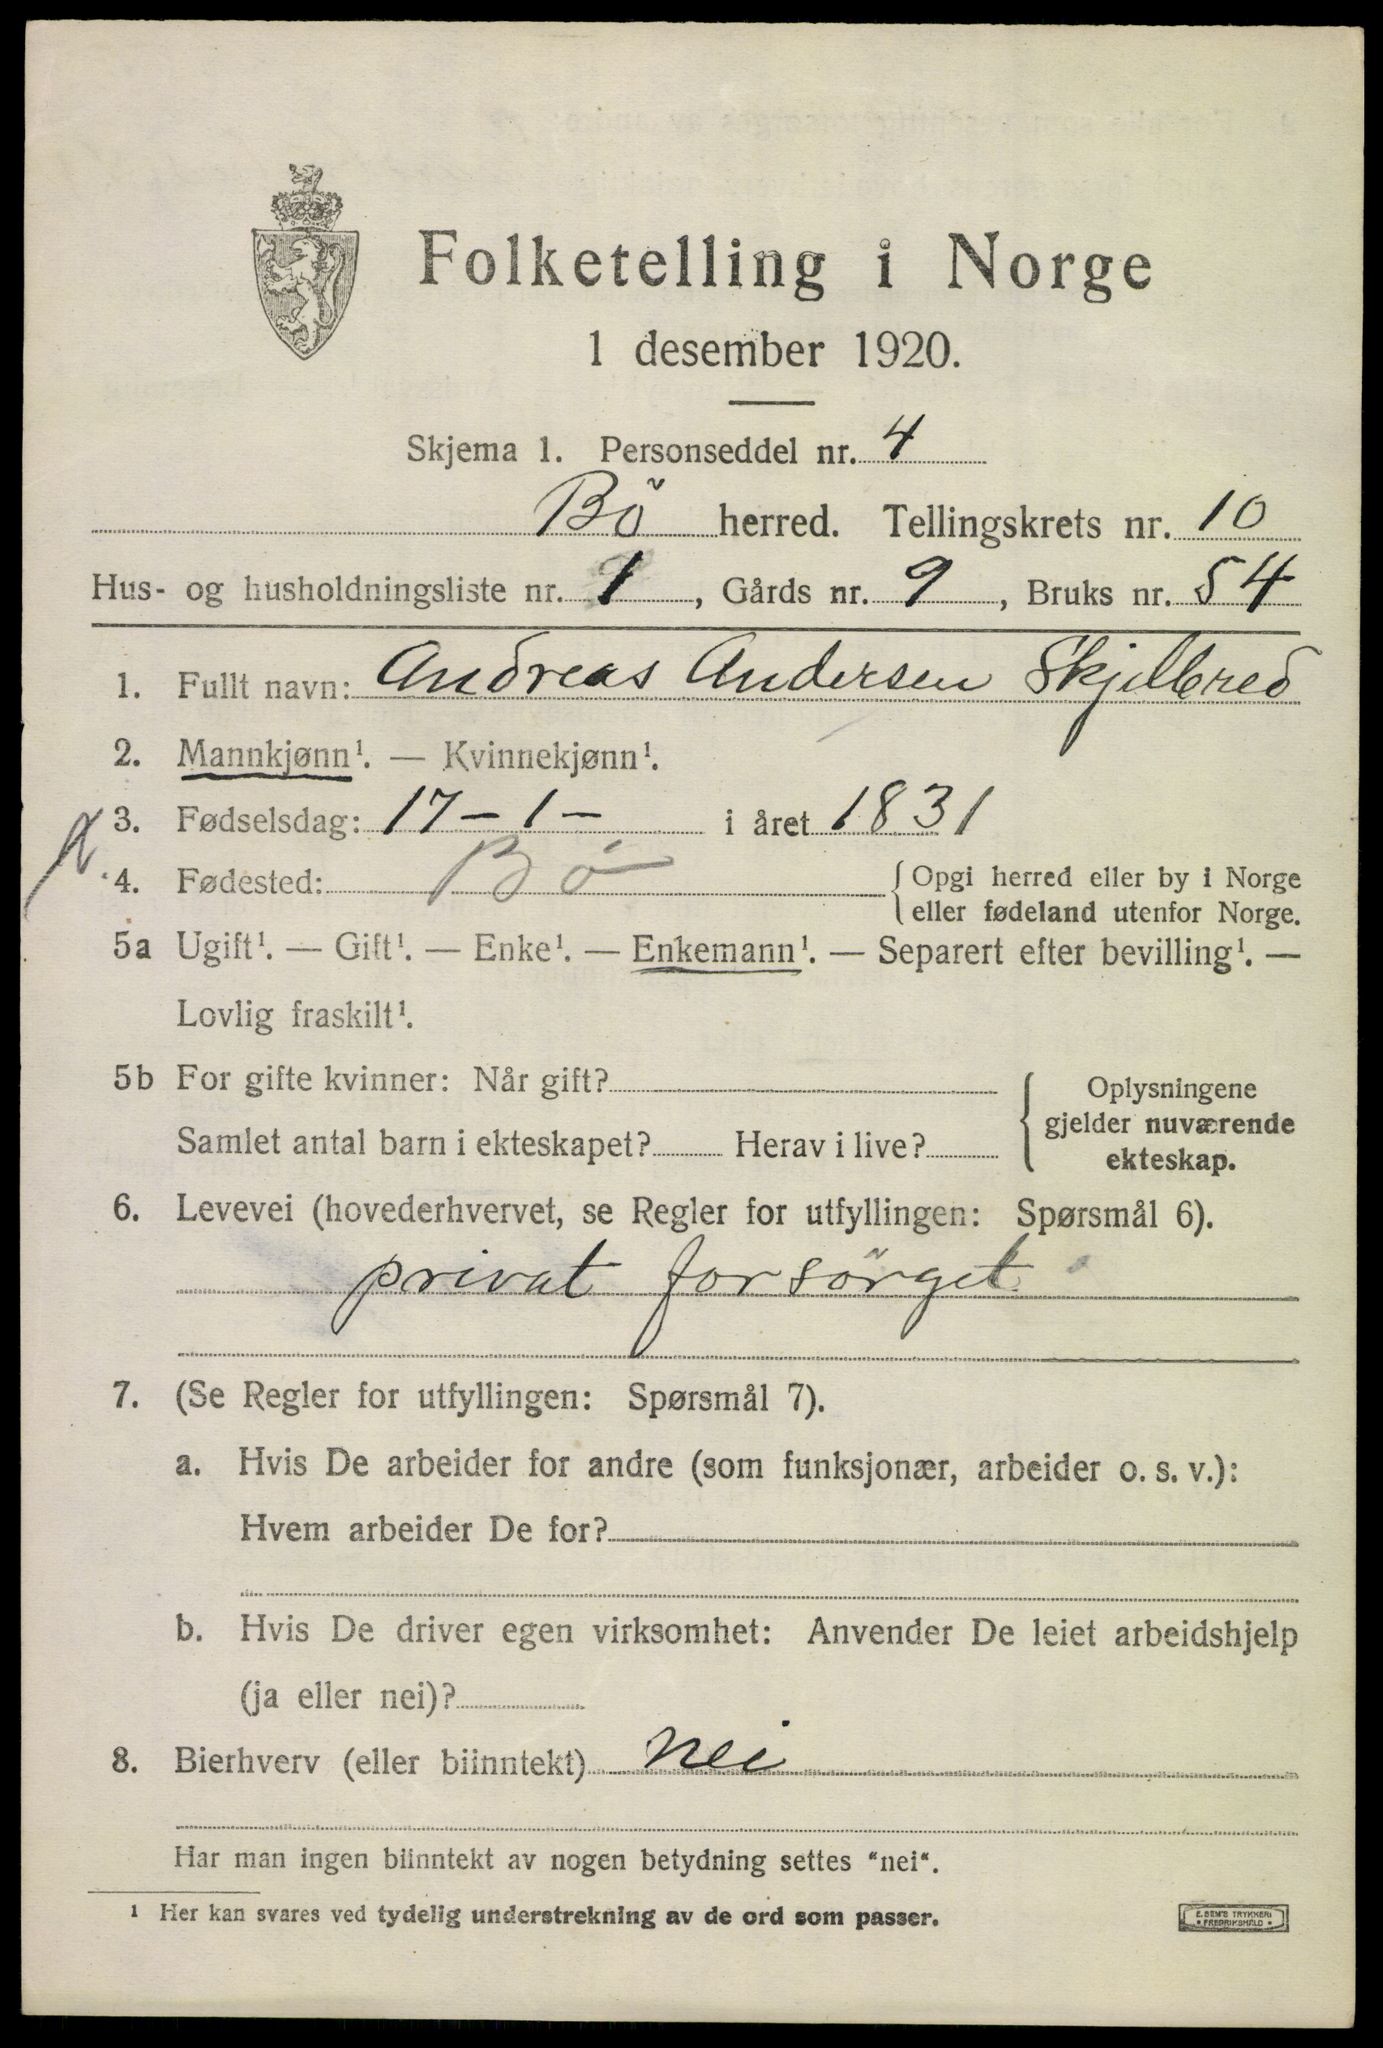 Folketelling i Norge
1 desember 1920.
Skjema 1. Personseddel nr. 4
Bö herred. Tellingskrets nr. 10
Hus- og husholdningsliste nr. 1, Gårds nr. 9, Bruks nr. 54
1. Fullt navn: Andreas Andersen Skjelbred
2. Mannkjønn¹. — Kvinnekjønn¹.
3. Fødselsdag: 17 - 1 - i året 1831
4. Fødested: Bø { Opgi herred eller by i Norge
eller fødeland utenfor Norge.
5a Ugift¹. — Gift¹. — Enke¹. — Enkemann¹. — Separert efter bevilling¹. —
Lovlig fraskilt¹.
5b For gifte kvinner: Når gift?
Samlet antal barn i ekteskapet? Herav i live?
{ Oplysningene
gjelder nuværende
ekteskap.
6. Levevei (hovederhvervet, se Regler for utfyllingen: Spørsmål 6).
privat forsörget
7. (Se Regler for utfyllingen: Spørsmål 7).
a. Hvis De arbeider for andre (som funksjonær, arbeider o. s. v.):
Hvem arbeider De for?
b. Hvis De driver egen virksomhet: Anvender De leiet arbeidshjelp
(ja eller nei)?
8. Bierhverv (eller biinntekt) nei
Har man ingen biinntekt av nogen betydning settes "nei".
¹ Her kan svares ved tydelig understrekning av de ord som passer.
E. SEM'S TRYKKERI
• FREDRIKSHALD •